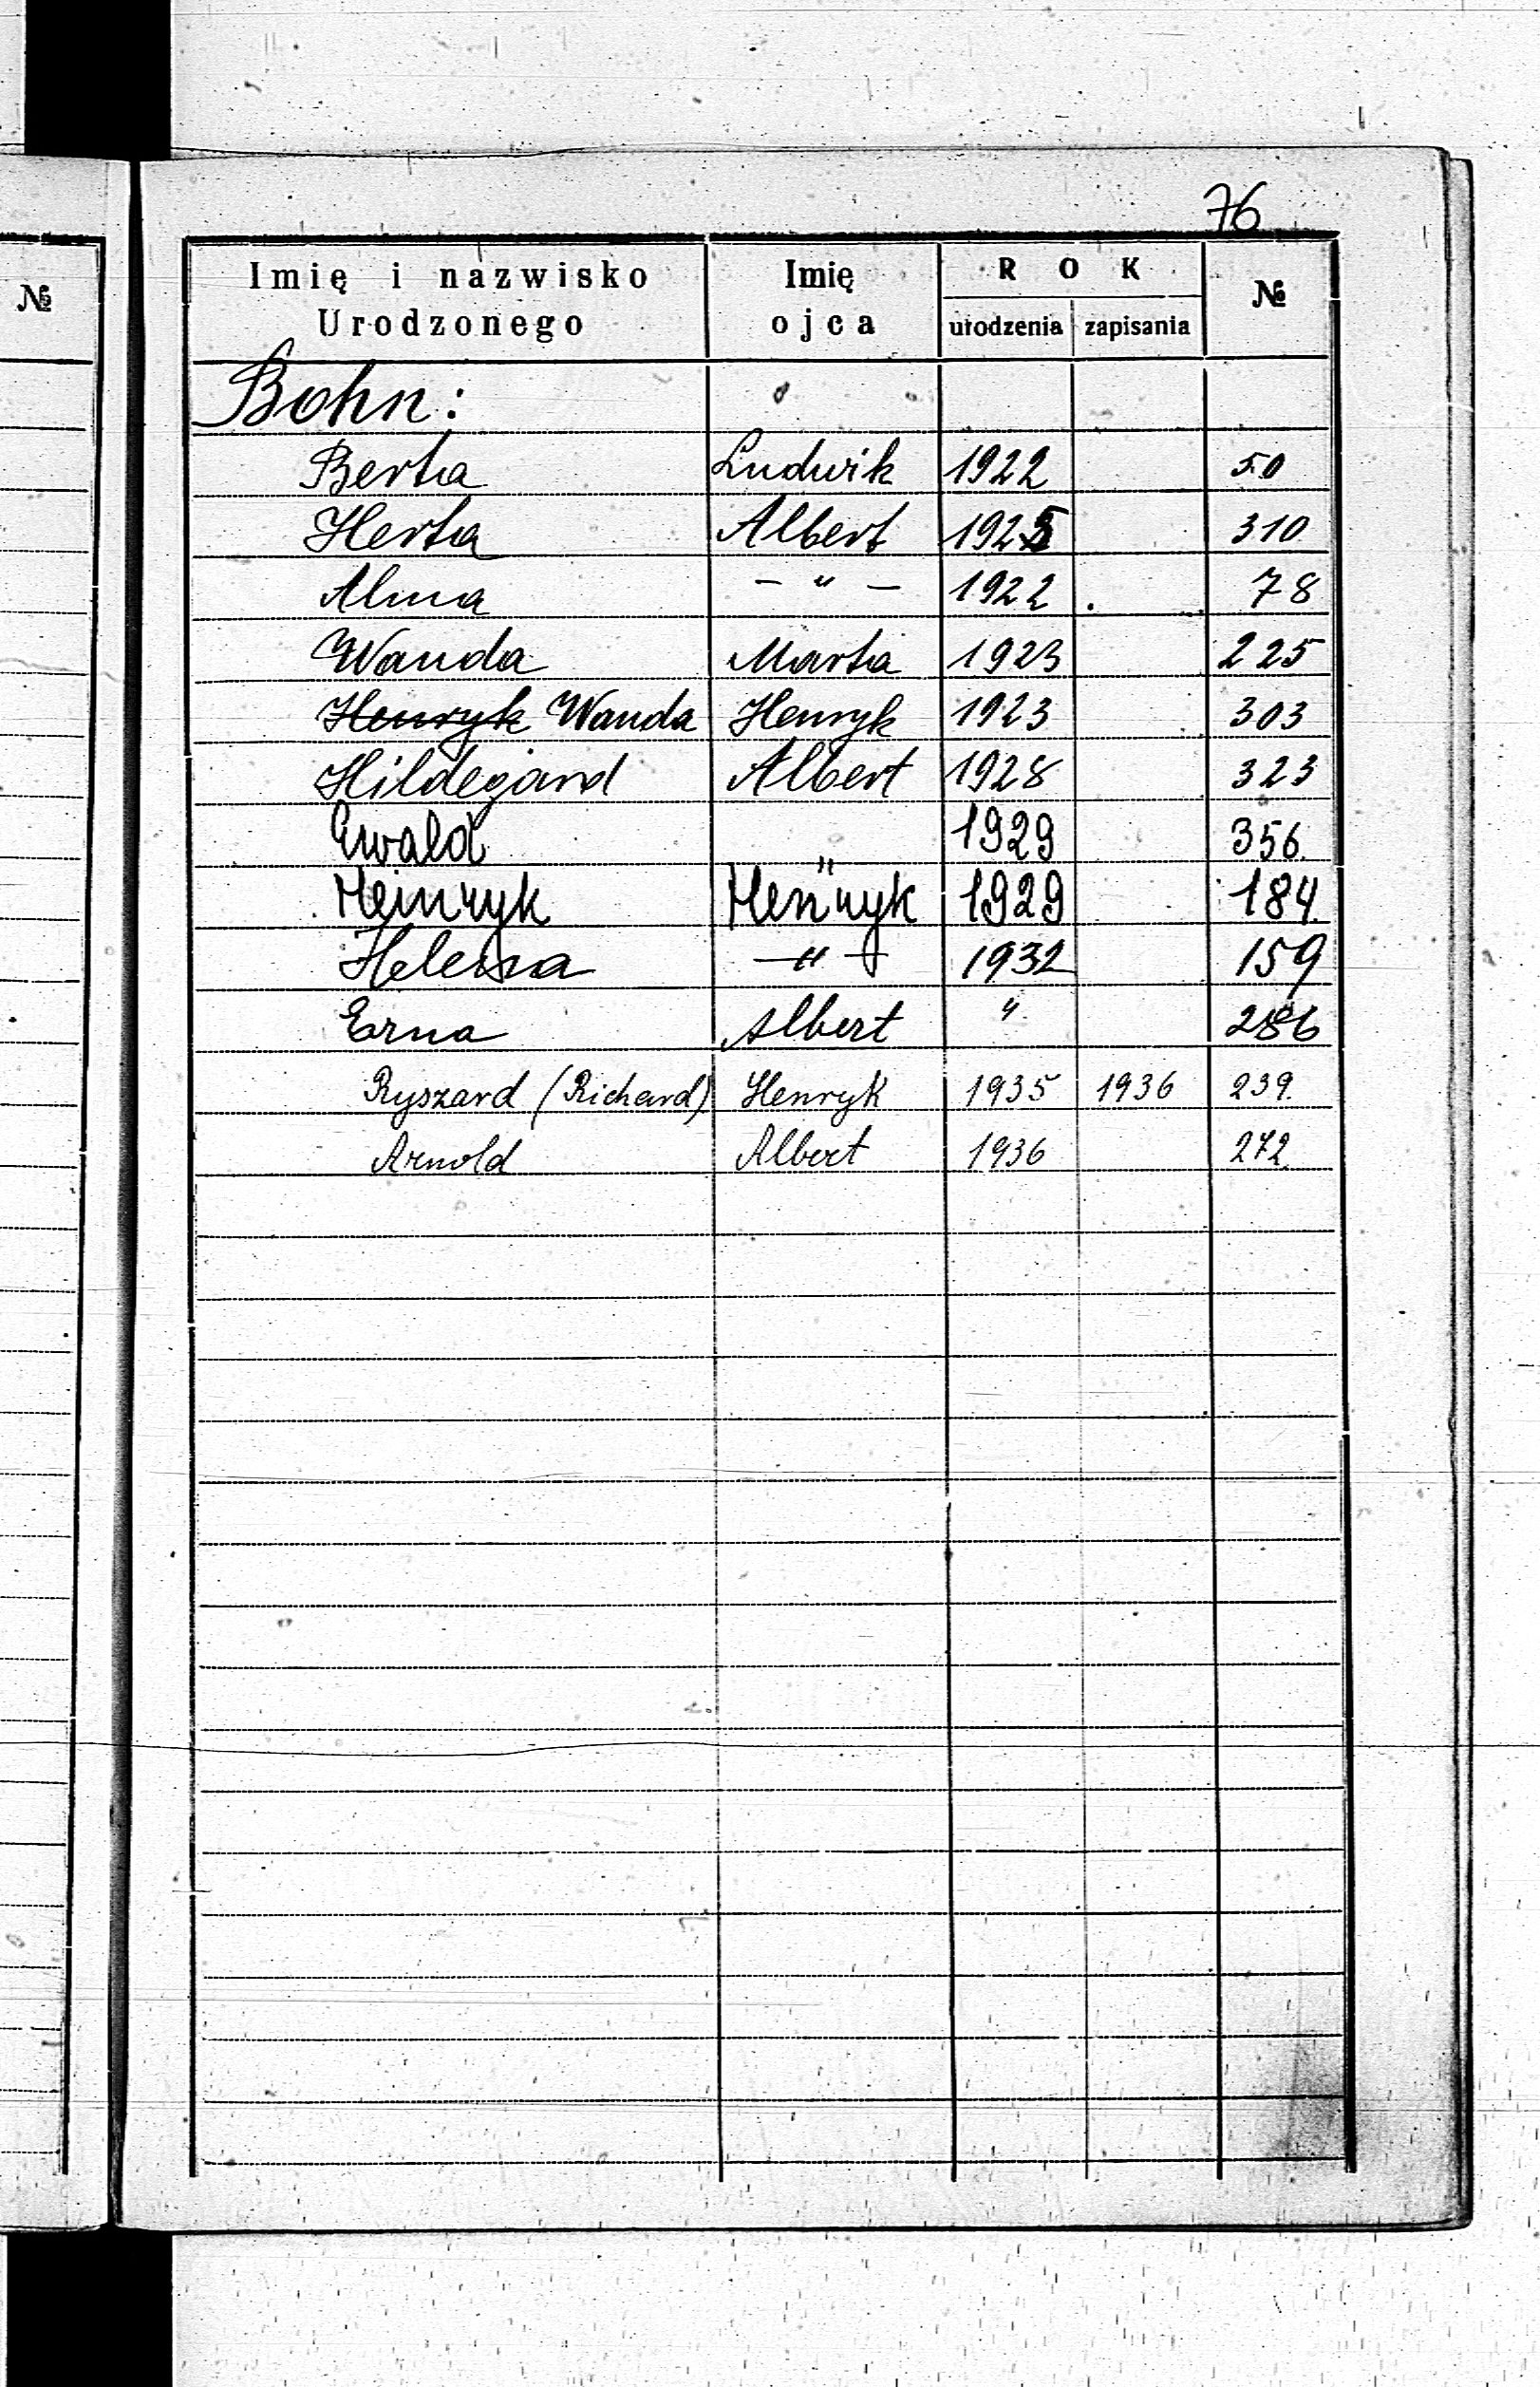 76
№
Imię i nazwisko Urodzonego Imię ojca ROK urodzenia zapisania №
Bohn:
Berta Ludwik 1922 50
Herta Albert 1925 310
Alma — " — 1922 78
Wanda Marta 1923 225
Henryk Wanda Henryk 1923 303
Hildegard Albert 1928 323
Ewald " 1929 356.
Heinryk Henryk 1929 184
Helena — " — 1932 159
Erna Albert " 286
Ryszard (Richard) Henryk 1935 1936 239.
Arnold Albert 1936 272